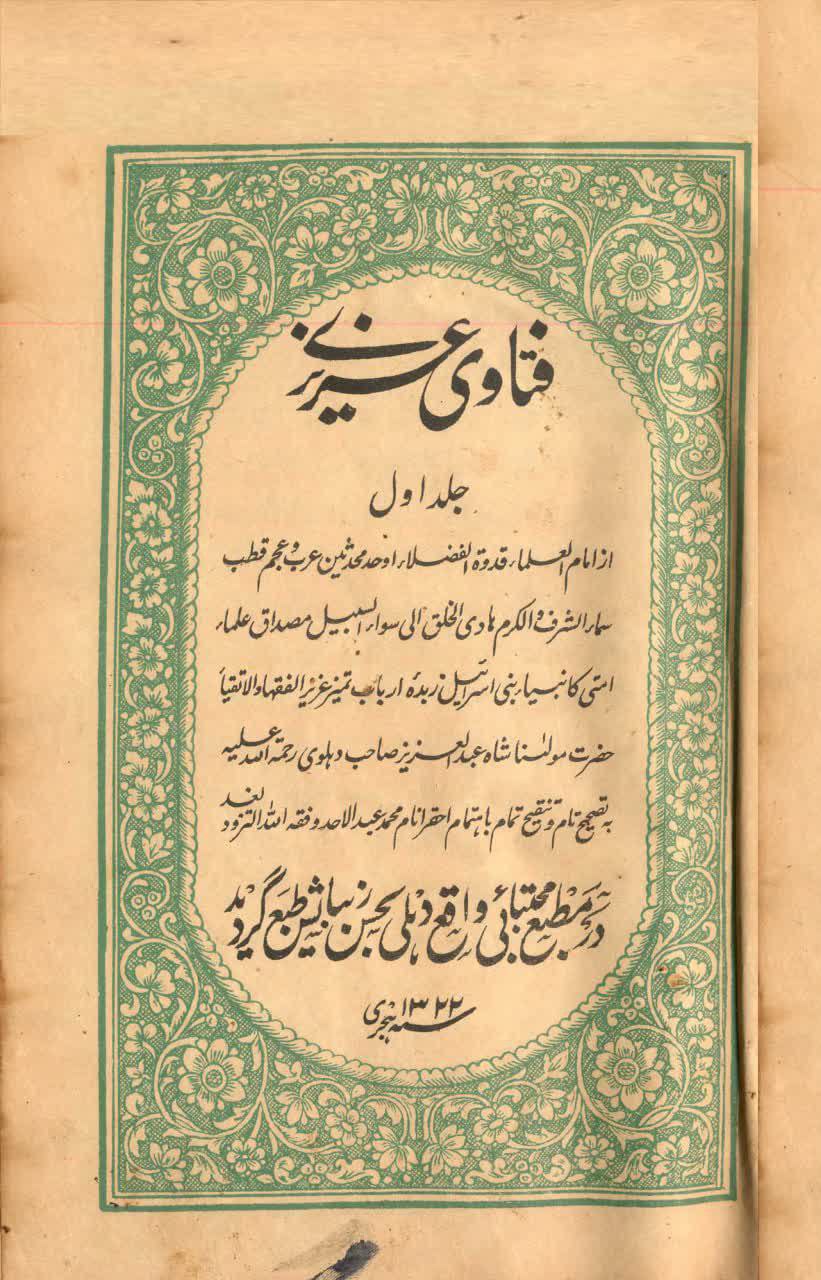 فتاوی عزیزی
جلد اول
از امام العلماء قدوة الفضلاء اوحد محدثین عرب و عجم قطب
سماء الشرف والکرم هادی الخلق الی سواء السبیل مصداق علماء
امتی کانبیاء بنی اسرائیل زبدۂ ارباب تمیز عزیز الفقهاء والاتقیا
حضرت مولٰنا شاه عبد العزیز صاحب دهلوی رحمة الله علیه
به تصحیح تام و تنقیح تمام باهتمام احقر انام محمد عبد الاحد وفقه الله التزود لغد
در مطبع مجتبائی واقع دهلی بحسن زیبایش طبع گردید
سنه ۱۳۲۲ هجری